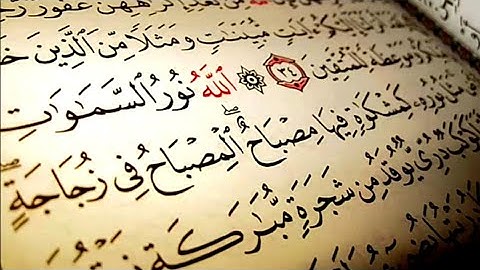 بَعْدِ إِكْرَٰهِهِنَّ غَفُورٌ
ءَايَٰتٍ مُّبَيِّنَٰتٍ وَمَثَلًا مِّنَ ٱلَّذِينَ
وَمَوْعِظَةً لِّلْمُتَّقِينَ ٣٤ ٱللَّهُ نُورُ ٱلسَّمَٰوَٰتِ
مَثَلُ نُورِهِۦ كَمِشْكَوٰةٍ فِيهَا مِصْبَاحٌ ٱلْمِصْبَاحُ فِى زُجَاجَةٍ
كَوْكَبٌ دُرِّىٌّ يُوقَدُ مِن شَجَرَةٍ مُّبَٰرَكَةٍ